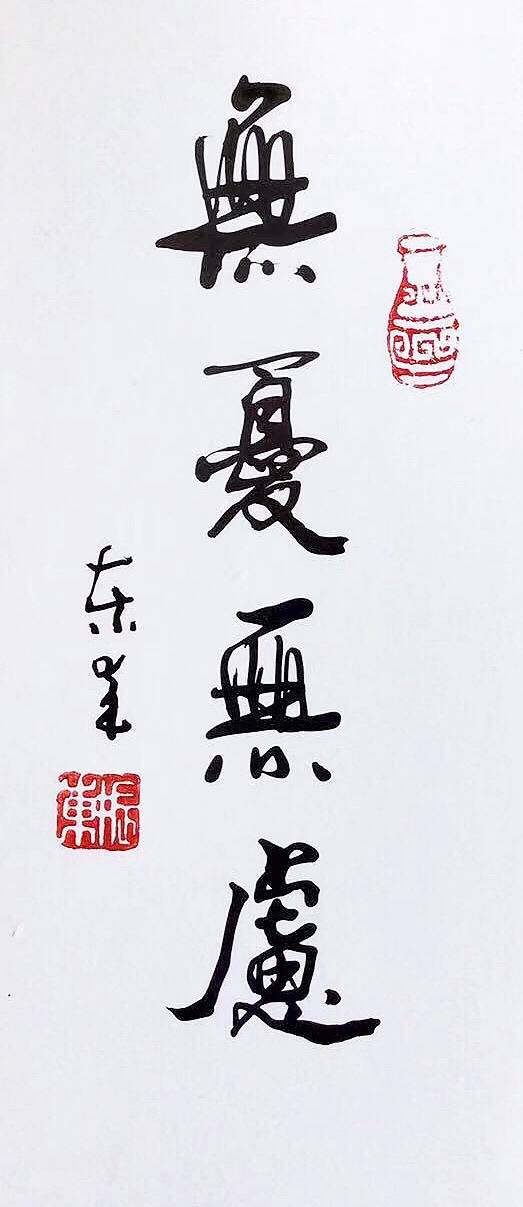 無憂無慮